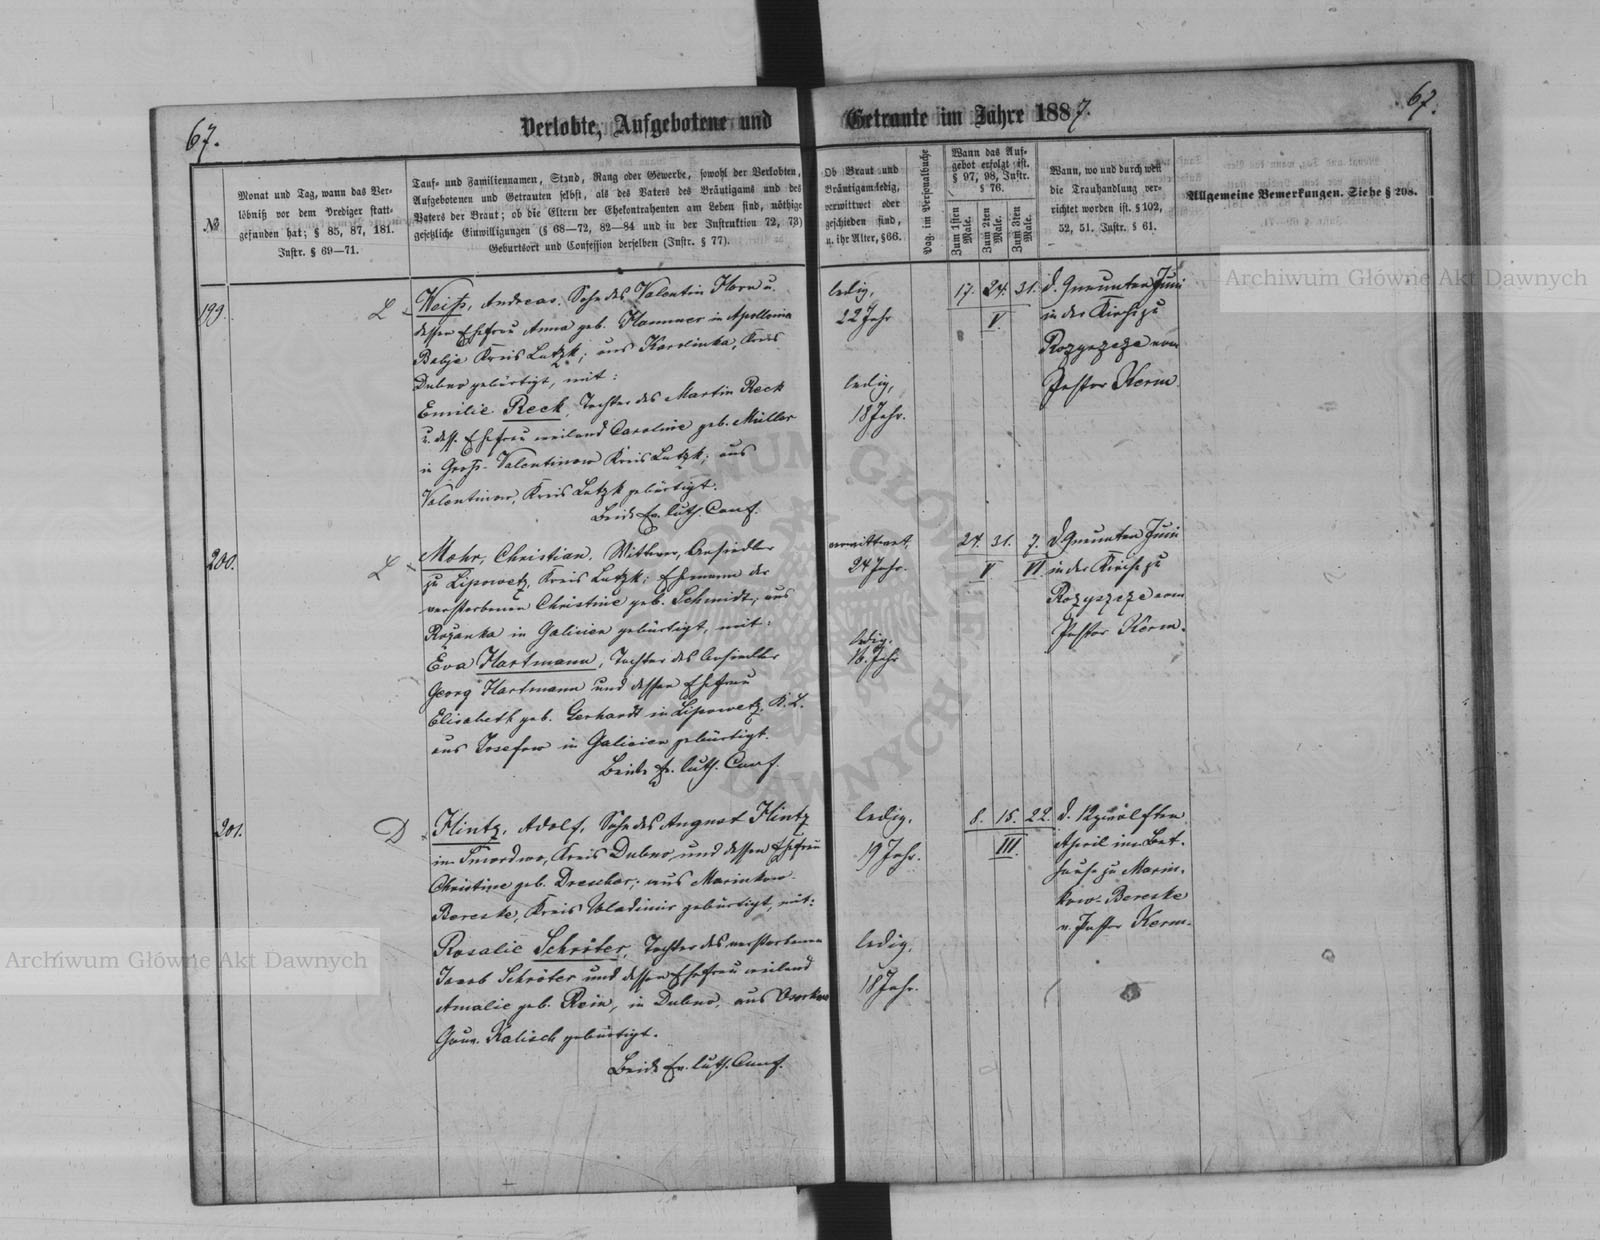 67.
Verlobte, Aufgebotene und
Getraute im Jahre 1887.
67.
№
Monat und Tag, wann das Ver-
löbniß vor dem Prediger statt-
gefunden hat; § 85, 87, 181.
Instr. § 69—71.
Tauf- und Familiennamen, Stand, Rang oder Gewerbe, sowohl der Verlobten,
Aufgebotenen und Getrauten selbst, als des Vaters des Bräutigams und des
Vaters der Braut; ob die Eltern der Ehekontrahenten am Leben sind, nöthige
gesetzliche Einwilligungen (§ 68—72, 82—84 und in der Instruktion 72, 73)
Geburtsort und Confession derselben (Instr. § 77).
Ob Braut und
Bräutigam ledig,
verwittwet oder
geschieden sind,
u. ihr Alter, § 66.
Pag. im Personalbuche
Wann das Auf-
gebot erfolgt ist.
§ 97, 98, Instr.
§ 76.
Zum 1sten Male.
Zum 2ten Male.
Zum 3ten Male.
Wann, wo und durch wen
die Trauhandlung ver-
richtet worden ist. § 102,
52, 51. Instr. § 61.
Allgemeine Bemerkungen. Siehe § 208.
199.
L
Weiß, Andreas. Sohn des Valentin Horn u.
dessen Ehefrau Anna geb. Hammer in Apollonia
Kreis Lutzk; aus Karolinka, Kreis
Dubno gebürtigt, mit:
Emilie Reck, Tochter des Martin Reck
u. dess. Ehefrau weiland Caroline geb. Müller
in Groß-Valentinow Kreis Lutzk; aus
Valentinow, Kreis Lutzk gebürtigt.
Beide Ev. luth. Conf.
ledig,
22 Jahr
ledig,
18 Jahr.
17. 24. 31.
V.
d. Neunten Juni
in der Kirche zu
Rozyszcze vom
Pastor Kerm.
200.
L
Mohr, Christian, Wittwer, Ansiedler
zu Lipowetz, Kreis Lutzk; Ehemann der
verstorbenen Christine geb. Schmidt, aus
Rożanka in Galicien gebürtigt, mit:
Eva Hartmann, Tochter des Ansiedler
Georg Hartmann und dessen Ehefrau
Elisabeth geb. Gerhardt in Lipowetz, K. L.
aus Josefow in Galicien gebürtigt.
Beide Ev. luth. Conf.
verwittwet,
24 Jahr.
ledig.
16. Jahr
24. 31. 7.
V VI
d. Neunten Juni
in der Kirche zu
Rozyszcze vom
Pastor Kerm.
201.
D
Hintz, Adolf, Sohn des August Hintz
in Smordwa, Kreis Dubno, und dessen Ehefrau
Christine geb. Drescher; aus Marinkow-
Bereske, Kreis Wladimir gebürtigt, mit:
Rosalie Schröter, Tochter des verstorbenen
Jacob Schröter und dessen Ehefrau weiland
Amalie geb. Rein, in Dubno, aus
Gouv. Kalisch gebürtigt.
Beide Ev. luth. Conf.
ledig.
19 Jahr.
ledig.
18 Jahr.
8. 15. 22.
III.
d. Zwölften
April im Bet-
hause zu Marin-
kow-Bereske
v. Pastor Kerm.
Archiwum Główne Akt Dawnych
Archiwum Główne Akt Dawnych
ARCHIWUM GŁÓWNE AKT DAWNYCH